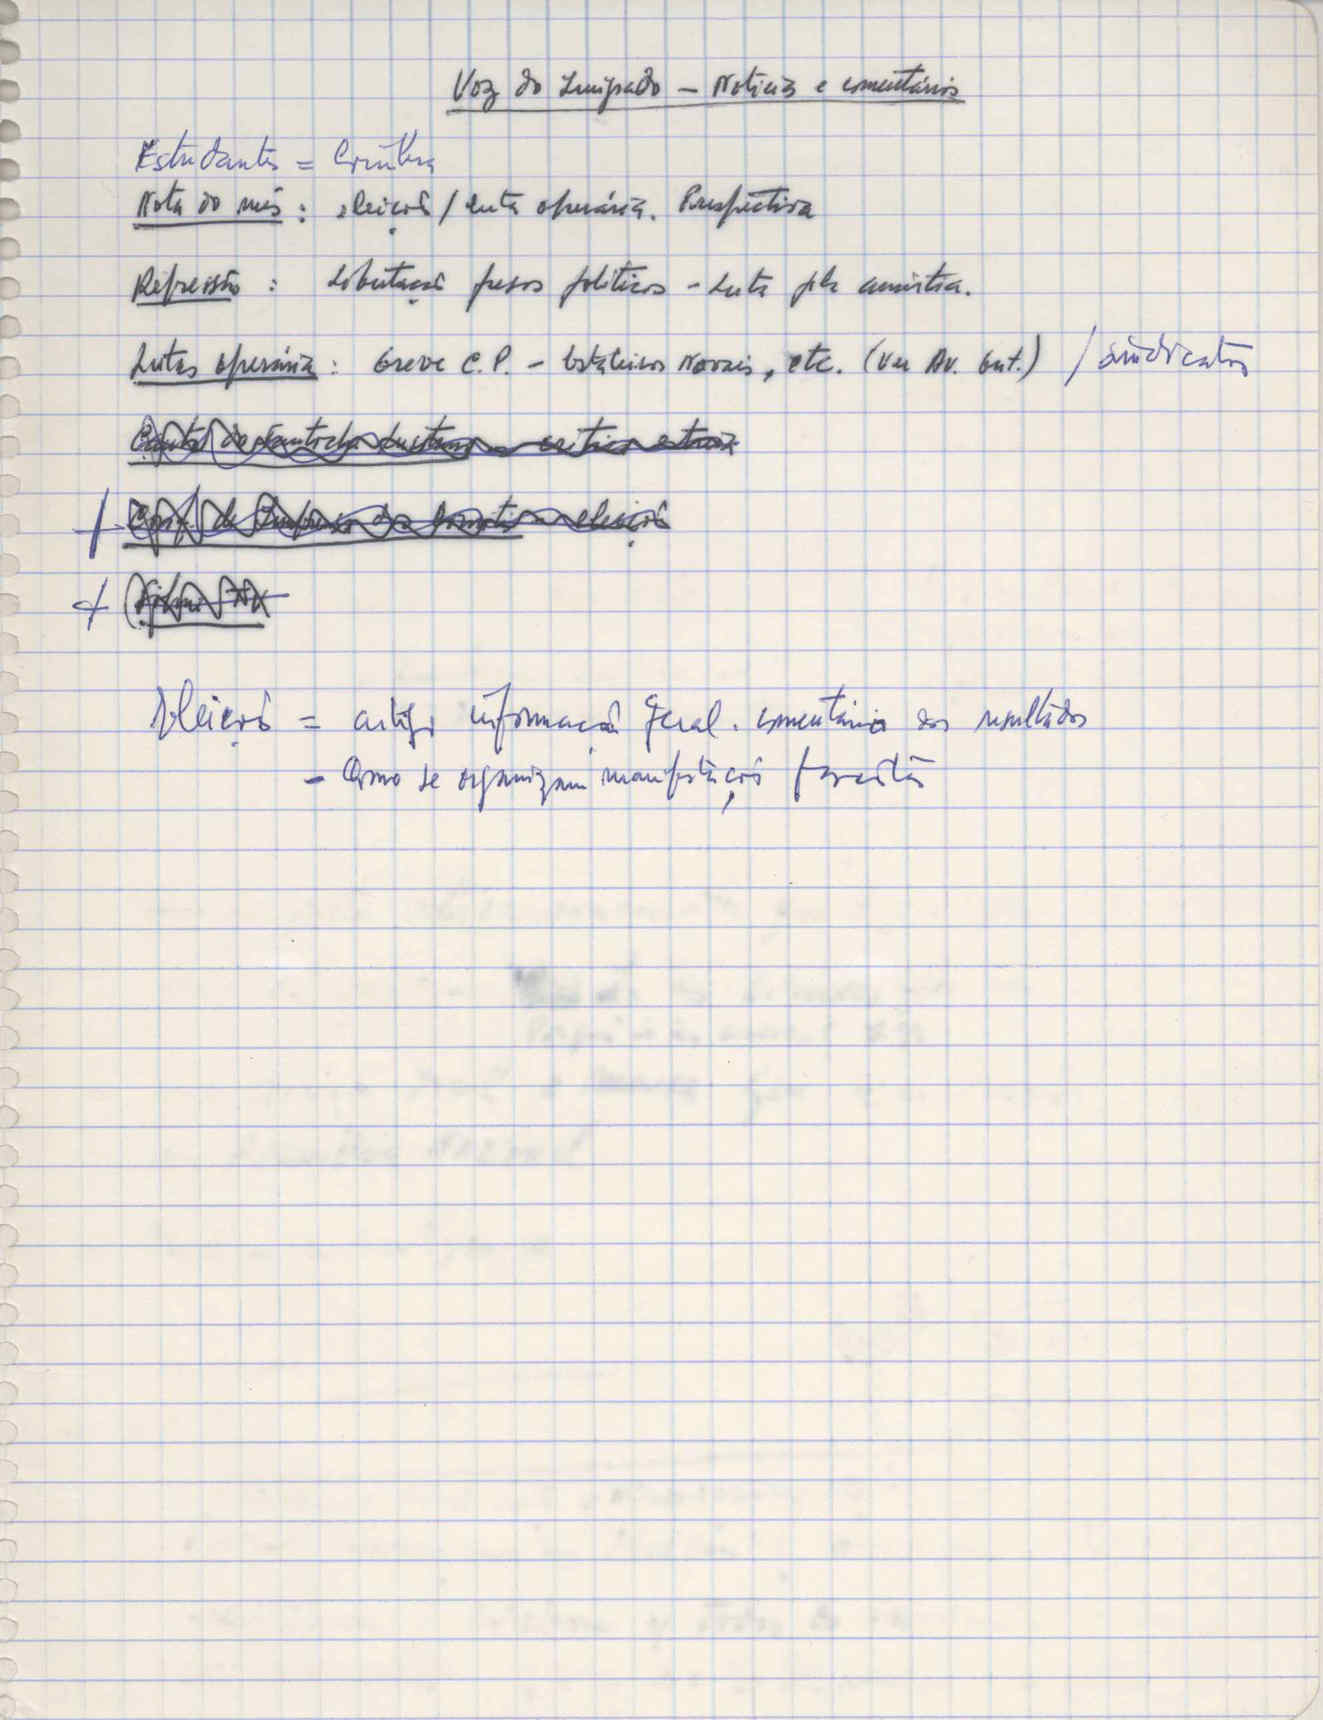 Voz do Emigrado — Notícias e comentários
Estudantes = Coimbra
Nota do mês : eleições / luta operária. Perspectiva
Repressão : Libertação presos políticos - Luta pela amnistia.
Lutas operárias : Greve C.P. - Estaleiros Navais, etc. (ver Av. Ant.) / sindicatos
Conf. de Imprensa eleições
Eleições = artigo informação geral. comentários aos resultados
- Como se organizam manifestações fascistas